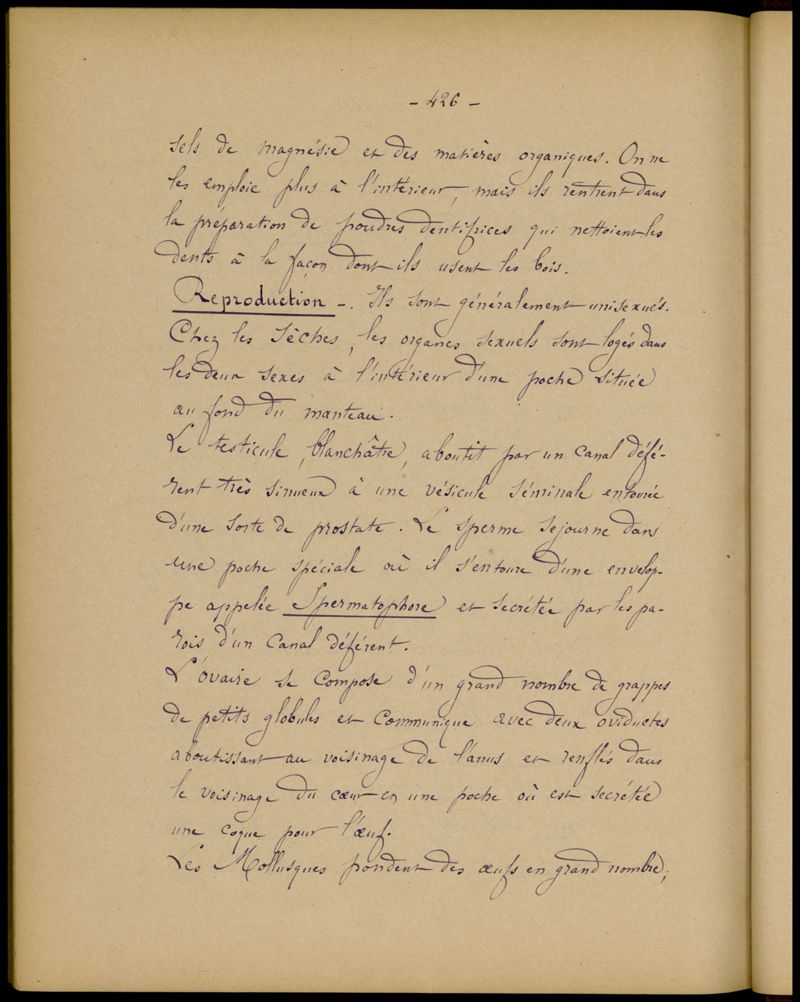 - 426 -
sels de magnésie et des matières organiques. On ne
les emploie plus à l'intérieur, mais ils rentrent dans
la préparation de poudres dentifrices qui nettoient les
dents à la façon dont ils usent les bois.
Reproduction -. Ils sont généralement unisexués.
Chez les Sèches, les organes sexuels sont logés dans
les deux sexes à l'intérieur d'une poche située
au fond du manteau.
Le testicule, blanchâtre, aboutit par un canal défé-
rent très sinueux à une vésicule séminale entourée
d'une sorte de prostate. Le sperme sejourne dans
une poche spéciale où il s'entoure d'une envelop-
pe appelée Spermatophore et secrétée par les pa-
rois d'un canal déférent.
L'ovaire se compose d'un grand nombre de grappes
de petits globules et communique avec deux oviductes
aboutissant au voisinage de l'anus et renflés dans
le voisinage du cœur en une poche où est secrétée
une coque pour l'œuf.
Les Mollusques pondent des œufs en grand nombre;